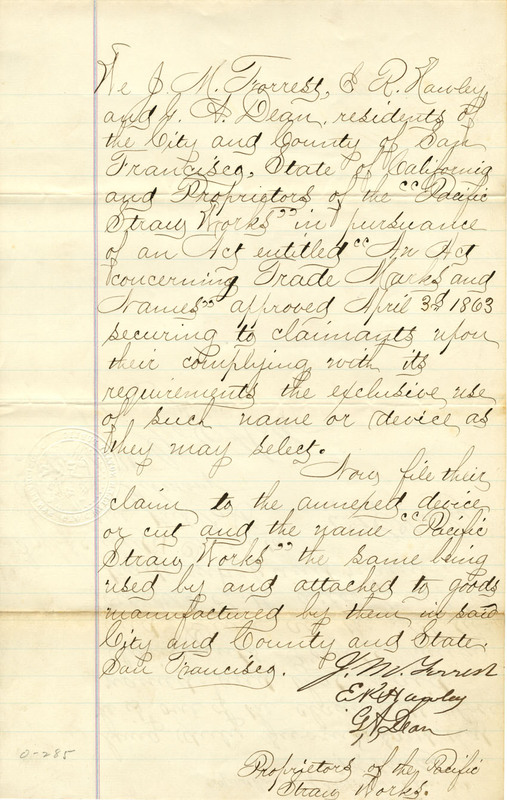 We J. M. Forrest, E R. Hawley
and G. A. Dean, residents of
the City and County of San
Francisco, State of California
and Proprietors of the "Pacific
Straw Works" in pursuance
of an Act entitled "An Act
concerning Trade Marks and
Names" approved April 3d 1863
securing to claimants upon
their complying with its
requirements the exclusive use
of such name or device as
they may select.
Now file their
claim to the annexed device
or cut and the name "Pacific
Straw Works" the same being
used by and attached to goods
manufactured by them in said
City and County and State.
San Francisco.
J. M. Forrest
E R Hawley
G A Dean
Proprietors of the Pacific
Straw Works.
0-285